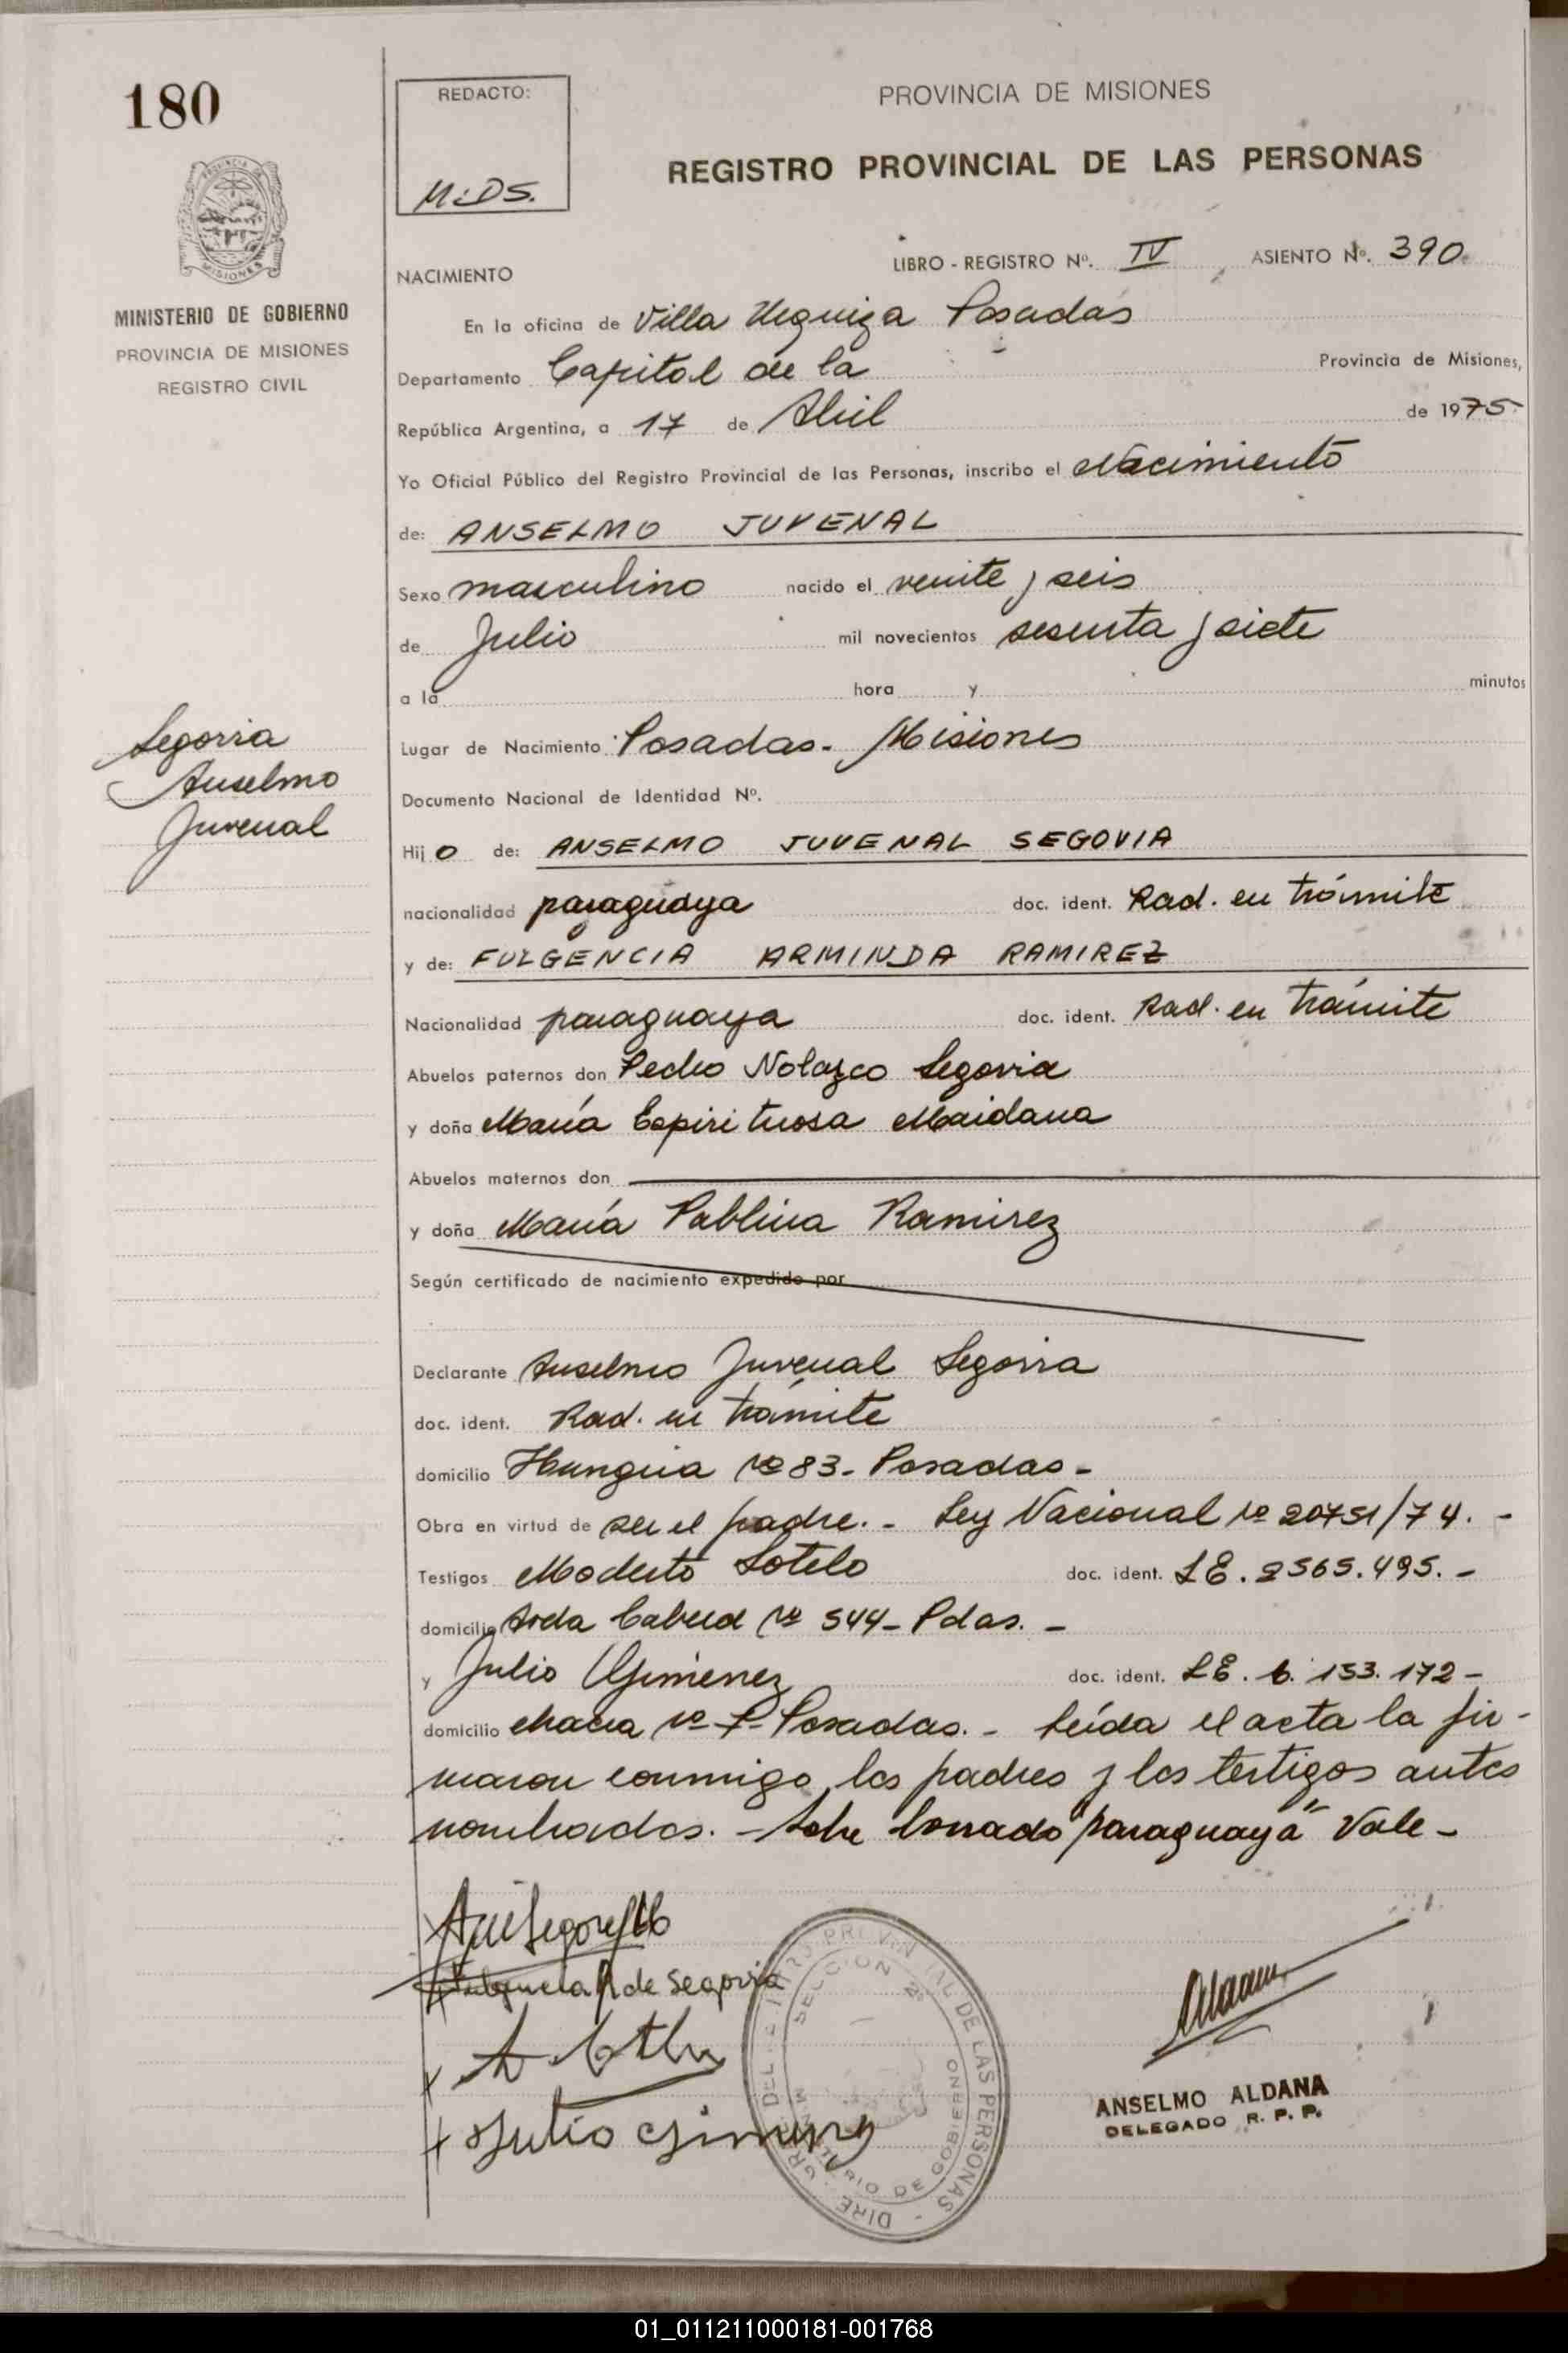 180
REDACTO:
M.DS.
PROVINCIA DE MISIONES
REGISTRO PROVINCIAL DE LAS PERSONAS
MISIONES
MINISTERIO DE GOBIERNO
PROVINCIA DE MISIONES
REGISTRO CIVIL
LIBRO - REGISTRO Nº. IV ASIENTO Nº. 390
NACIMIENTO
En la oficina de Villa Urquiza Posadas
Departamento Capital de la Provincia de Misiones,
República Argentina, a 17 de Abril de 1975.
Yo Oficial Público del Registro Provincial de las Personas, inscribo el Nacimiento
de: ANSELMO JUVENAL
Sexo masculino nacido el veinte y seis
de Julio mil novecientos sesenta y siete
a la hora y minutos
Segovia
Anselmo
Juvenal
Lugar de Nacimiento Posadas - Misiones
Documento Nacional de Identidad Nº.
Hijo de: ANSELMO JUVENAL SEGOVIA
nacionalidad paraguaya doc. ident. Rad. en trámite
y de: FULGENCIA ARMINDA RAMIREZ
Nacionalidad paraguaya doc. ident. Rad. en trámite
Abuelos paternos don Pedro Nolazco Segovia
y doña María Espirituosa Maidana
Abuelos maternos don
y doña María Pablina Ramirez
Según certificado de nacimiento expedido por
Declarante Anselmo Juvenal Segovia
doc. ident. Rad. en trámite
domicilio Hungria Nº 83 - Posadas -
Obra en virtud de ser el padre. - Ley Nacional Nº 20751/74. -
Testigos Modesto Sotelo doc. ident. LE. 2565.495. -
domicilio Avda Cabred Nº 544 - Pdas. -
y Julio Gimenez doc. ident. LE. 6.153.172 -
domicilio chacra Nº 7 - Posadas. - Leída el acta la fir -
maron conmigo los padres y los testigos antes
nombrados. - Sobre borrado "paraguaya" Vale -
de Segovia
Julio Gimenez
SECCION 2ª
DE LAS PERSONAS
DE GOBIERNO
ANSELMO ALDANA
DELEGADO R. P. P.
01_011211000181-001768